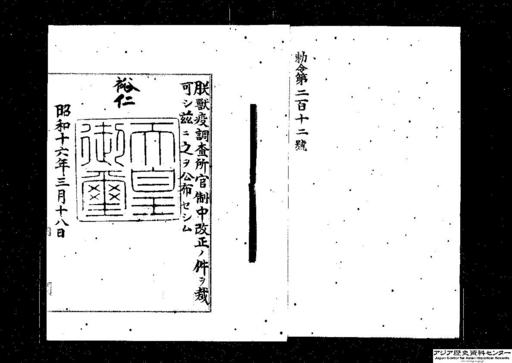 勅令第二百十二號
朕獸疫調査所官制中改正ノ件ヲ裁
可シ茲ニ之ヲ公布セシム
裕仁
天皇
御璽
昭和十六年三月十八日
アジア歴史資料センター
Japan Center for Asian Historical Records